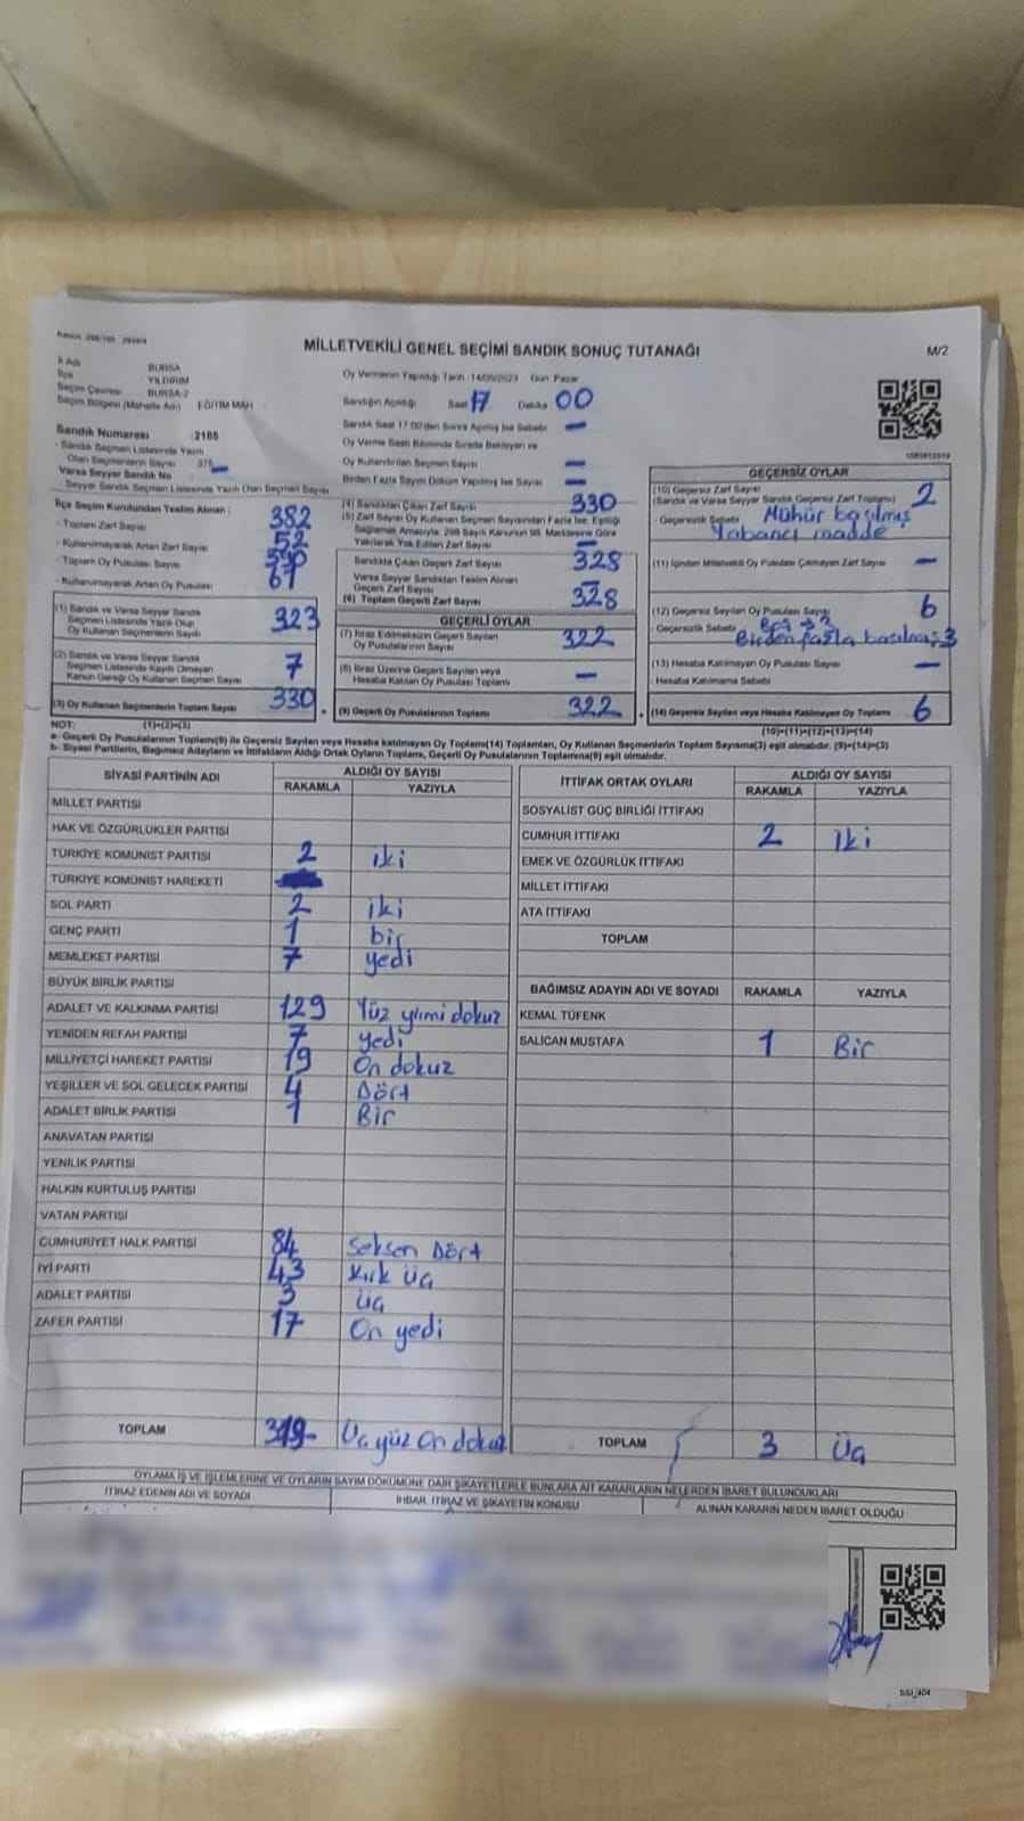 MİLLETVEKİLİ GENEL SEÇİMİ SANDIK SONUÇ TUTANAĞI
M/2
İl Adı BURSA
İlçe YILDIRIM
Seçim Çevresi BURSA-2
Seçim Bölgesi (Mahalle Adı) EĞİTİM MAH
Sandık Numarası :2185
Oy Vermenin Yapıldığı Tarih :14/05/2023 Gün: Pazar
Sandığın Açıldığı Saat 17 Dakika 00
Oy Kullandırılan Seçmen Sayısı —
İlçe Seçim Kurulundan Teslim Alınan :
- Toplam Zarf Sayısı 382
- Kullanılmayarak Artan Zarf Sayısı 52
- Toplam Oy Pusulası Sayısı
- Kullanılmayarak Artan Oy Pusulası
(1) Sandık ve Varsa Seyyar Sandık
Seçmen Listesinde Yazılı Olan
Oy Kullanan Seçmenlerin Sayısı 323
(2) Sandık ve Varsa Seyyar Sandık
Seçmen Listesinde Kayıtlı Olmayan
Kanun Gereği Oy Kullanan Seçmen Sayısı 7
(3) Oy Kullanan Seçmenlerin Toplam Sayısı 330
(4) Sandıktan Çıkan Zarf Sayısı 330
Sandıkta Çıkan Geçerli Zarf Sayısı 328
Varsa Seyyar Sandıktan Teslim Alınan
Geçerli Zarf Sayısı —
(6) Toplam Geçerli Zarf Sayısı 328
GEÇERLİ OYLAR
(7) İtiraz Edilmeksizin Geçerli Sayılan
Oy Pusulalarının Sayısı 322
(8) İtiraz Üzerine Geçerli Sayılan veya
Hesaba Katılan Oy Pusulası Toplamı —
(9) Geçerli Oy Pusulalarının Toplamı 322
GEÇERSİZ OYLAR
(10) Geçersiz Zarf Sayısı
(Sandık ve Varsa Seyyar Sandık Geçersiz Zarf Toplamı) 2
Geçersizlik Sebebi Mühür basılmış
Yabancı madde
(11) İçinden Milletvekili Oy Pusulası Çıkmayan Zarf Sayısı —
(12) Geçersiz Sayılan Oy Pusulası Sayısı 6
Geçersizlik Sebebi Boş → 3
Birden fazla basılmış 3
(13) Hesaba Katılmayan Oy Pusulası Sayısı —
Hesaba Katılmama Sebebi
(14) Geçersiz Sayılan veya Hesaba Katılmayan Oy Toplamı 6
NOT: (1)+(2)=(3)
(10)+(11)+(12)+(13)=(14)
a- Geçerli Oy Pusulalarının Toplamı(9) ile Geçersiz Sayılan veya Hesaba katılmayan Oy Toplamı(14) Toplamları, Oy Kullanan Seçmenlerin Toplam Sayısına(3) eşit olmalıdır. (9)+(14)=(3)
b- Siyasi Partilerin, Bağımsız Adayların ve İttifakların Aldığı Ortak Oyların Toplamı, Geçerli Oy Pusulalarının Toplamına(9) eşit olmalıdır.
SİYASİ PARTİNİN ADI
ALDIĞI OY SAYISI
RAKAMLA YAZIYLA
MİLLET PARTİSİ
HAK VE ÖZGÜRLÜKLER PARTİSİ
TÜRKİYE KOMÜNİST PARTİSİ 2 iki
TÜRKİYE KOMÜNİST HAREKETİ
SOL PARTİ 2 iki
GENÇ PARTİ 1 bir
MEMLEKET PARTİSİ 7 yedi
BÜYÜK BİRLİK PARTİSİ
ADALET VE KALKINMA PARTİSİ 129 Yüz yirmi dokuz
YENİDEN REFAH PARTİSİ 7 yedi
MİLLİYETÇİ HAREKET PARTİSİ 19 On dokuz
YEŞİLLER VE SOL GELECEK PARTİSİ 4 Dört
ADALET BİRLİK PARTİSİ 1 Bir
ANAVATAN PARTİSİ
YENİLİK PARTİSİ
HALKIN KURTULUŞ PARTİSİ
VATAN PARTİSİ
CUMHURİYET HALK PARTİSİ 84 Seksen Dört
İYİ PARTİ 43 Kırk üç
ADALET PARTİSİ 3 üç
ZAFER PARTİSİ 17 On yedi
TOPLAM 319 Üç yüz On dokuz
İTTİFAK ORTAK OYLARI
ALDIĞI OY SAYISI
RAKAMLA YAZIYLA
SOSYALİST GÜÇ BİRLİĞİ İTTİFAKI
CUMHUR İTTİFAKI 2 İki
EMEK VE ÖZGÜRLÜK İTTİFAKI
MİLLET İTTİFAKI
ATA İTTİFAKI
TOPLAM
BAĞIMSIZ ADAYIN ADI VE SOYADI RAKAMLA YAZIYLA
KEMAL TÜFENK
SALİCAN MUSTAFA 1 Bir
TOPLAM 3 Üç
OYLAMA İŞ VE İŞLEMLERİNE VE OYLARIN SAYIM DÖKÜMÜNE DAİR ŞİKAYETLERLE BUNLARA AİT KARARLARIN NELERDEN İBARET BULUNDUKLARI
İTİRAZ EDENİN ADI VE SOYADI
İHBAR, İTİRAZ VE ŞİKAYETİN KONUSU
ALINAN KARARIN NEDEN İBARET OLDUĞU